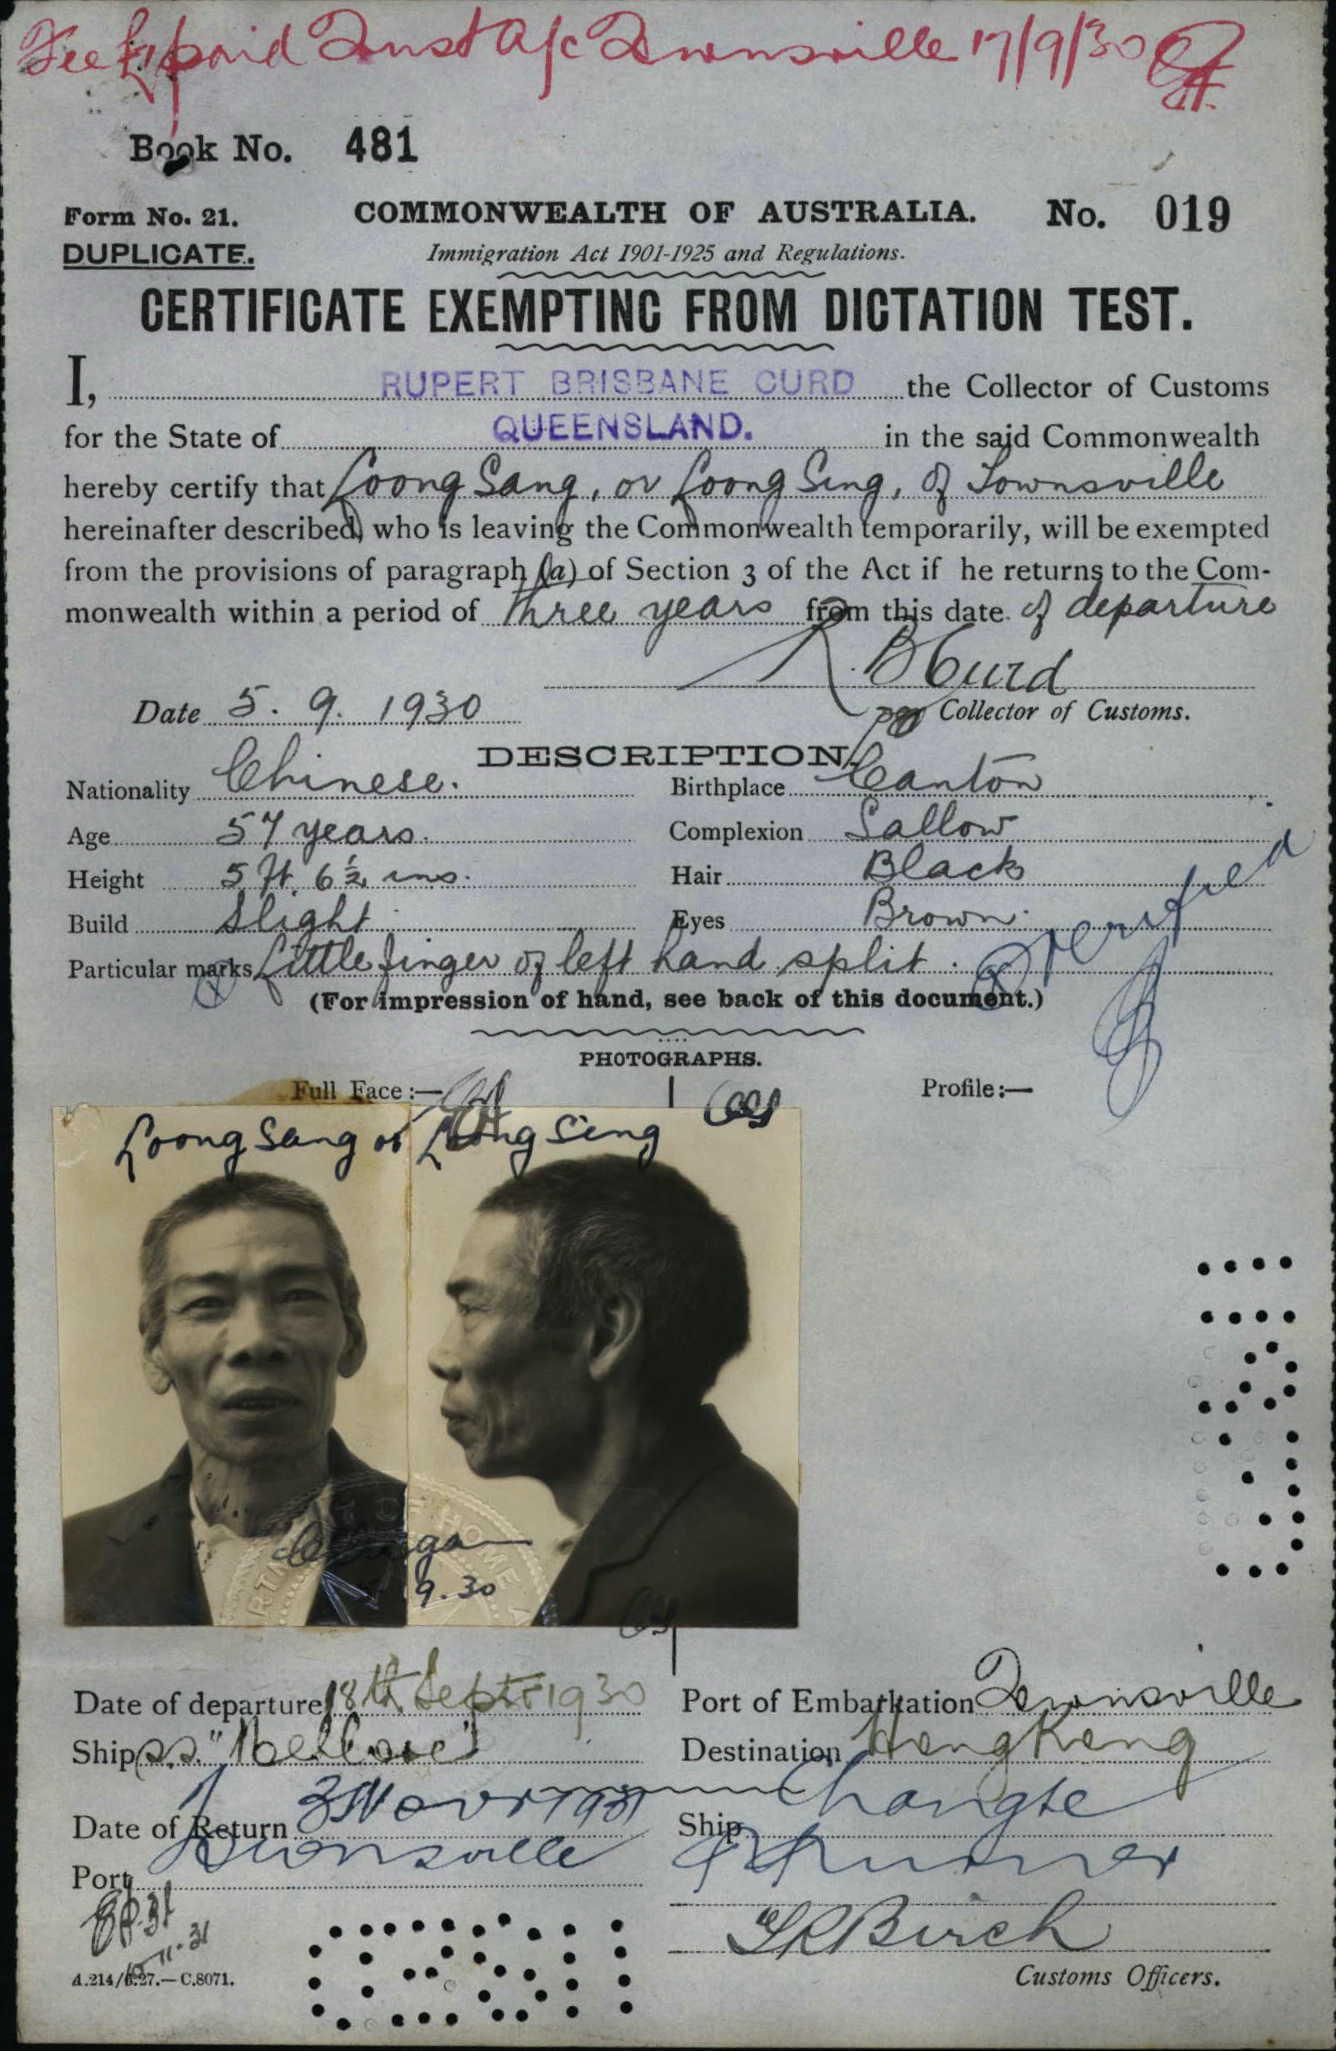 Fee £1 paid Trust A/c Townsville 17/9/30
Book No. 481
Form No. 21. COMMONWEALTH OF AUSTRALIA. No. 019
DUPLICATE. Immigration Act 1901-1925 and Regulations.
CERTIFICATE EXEMPTING FROM DICTATION TEST.
I, RUPERT BRISBANE CURD the Collector of Customs
for the State of QUEENSLAND. in the said Commonwealth
hereby certify that Loong Sang, or Loong Sing, of Townsville
hereinafter described, who is leaving the Commonwealth temporarily, will be exempted
from the provisions of paragraph (a) of Section 3 of the Act if he returns to the Com-
monwealth within a period of three years from this date of departure
R. B Curd
Date 5. 9. 1930 Collector of Customs.
DESCRIPTION.
Nationality Chinese. Birthplace Canton
Age 57 years. Complexion Sallow
Height 5 ft. 6½ ins. Hair Black
Build Slight Eyes Brown.
Particular marks Little finger of left hand split. Verified
(For impression of hand, see back of this document.)
PHOTOGRAPHS.
Full Face:— Profile:—
Loong Sang or Loong Sing
9.30
Date of departure 18th Septr 1930 Port of Embarkation Townsville
Ship s.s. "Mellore" Destination Hong Kong
Date of Return 3 Novr 1931 Ship Changte
Port Townsville
Birch
A.214/6.27.—C.8071. Customs Officers.